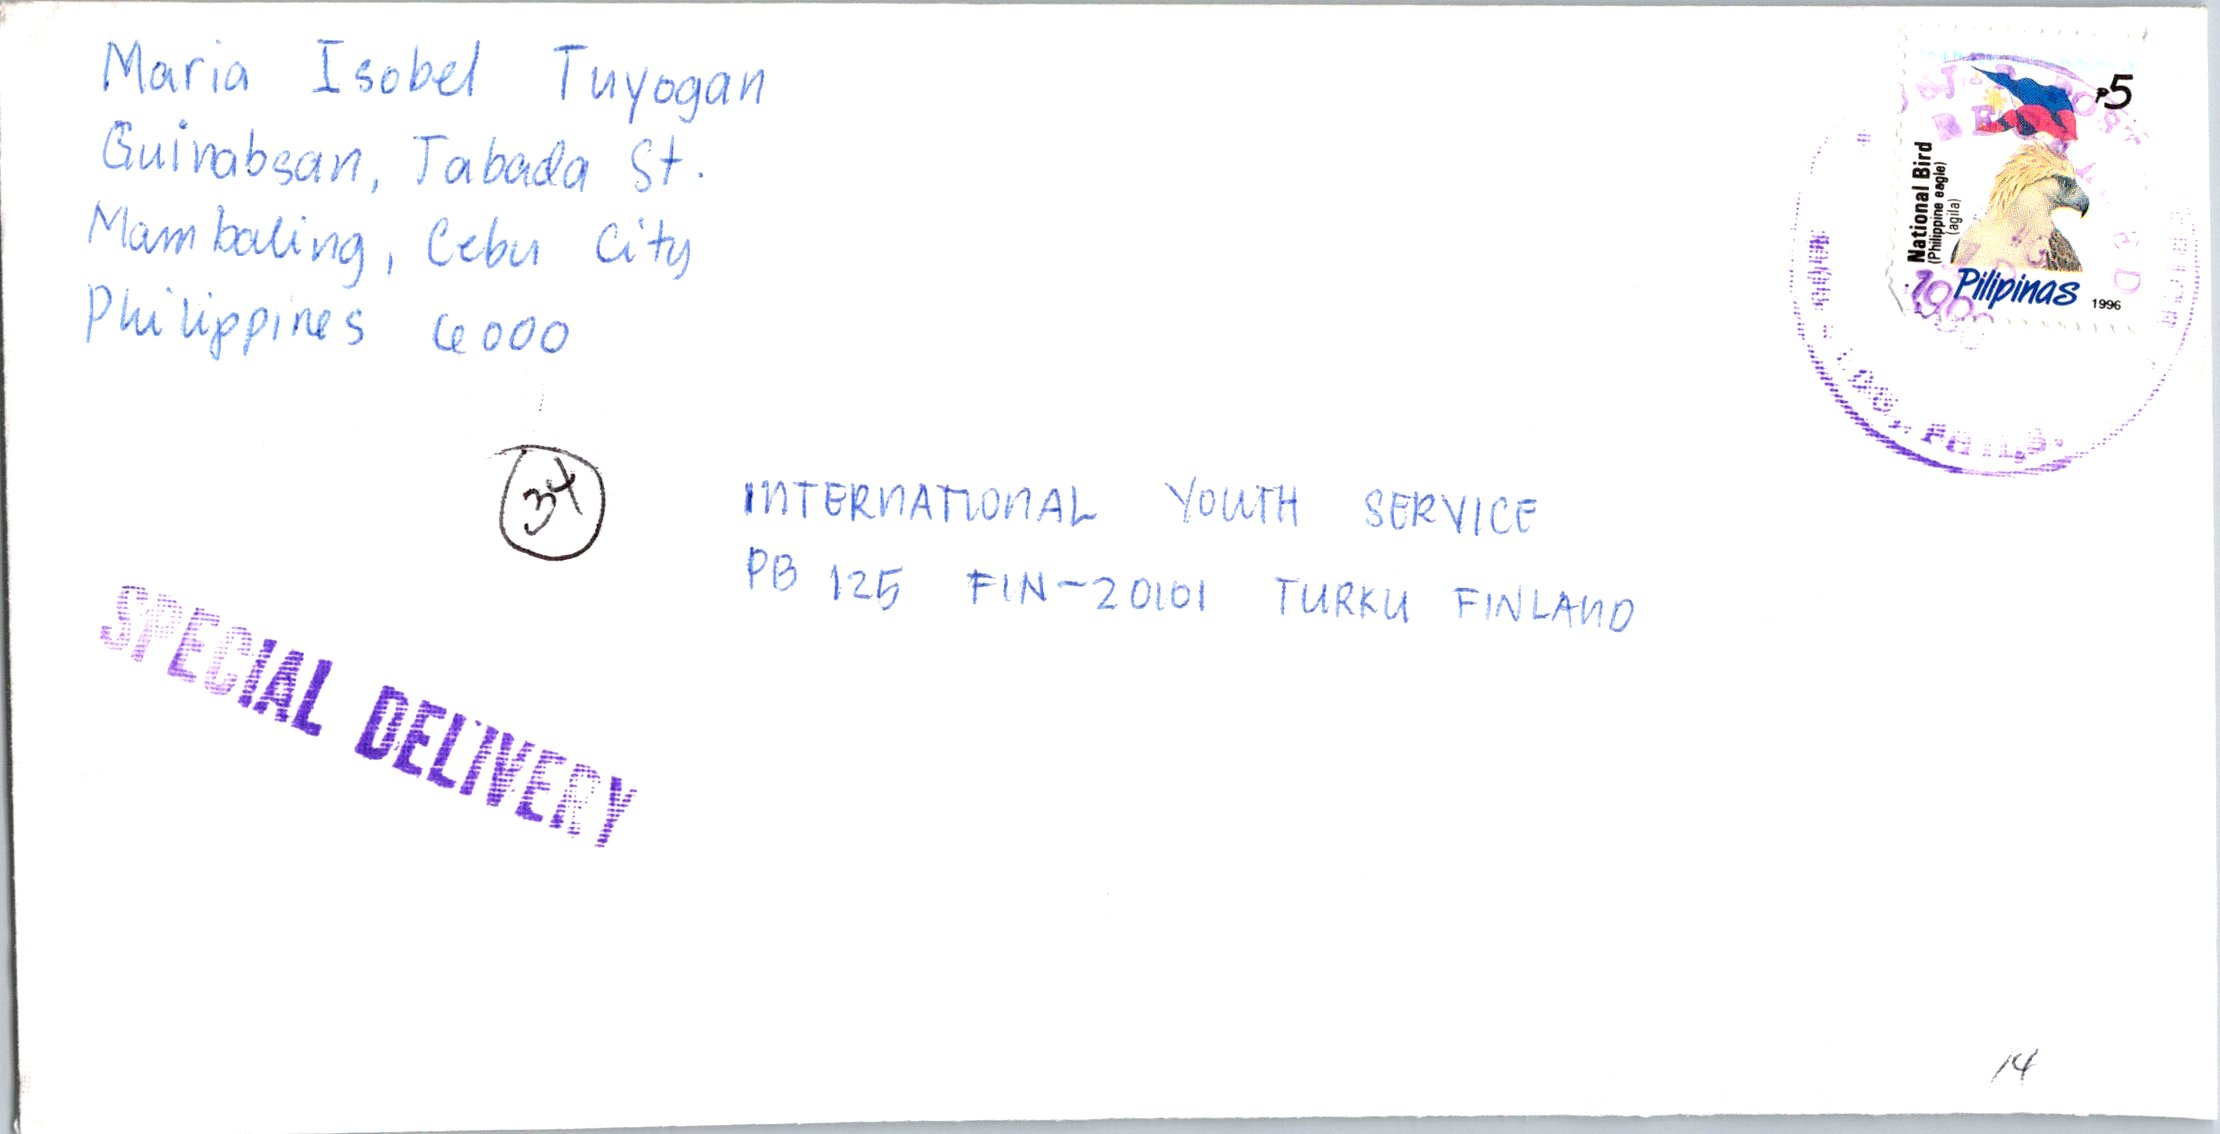 Maria Isobel Tuyogan
Guinabsan, Tabada St.
Mambaling, Cebu City
Philippines 6000
₱5
National Bird
(Philippine eagle)
(agila)
Pilipinas 1996
PHILS.
34
INTERNATIONAL YOUTH SERVICE
PB 125 FIN-20101 TURKU FINLAND
SPECIAL DELIVERY
14